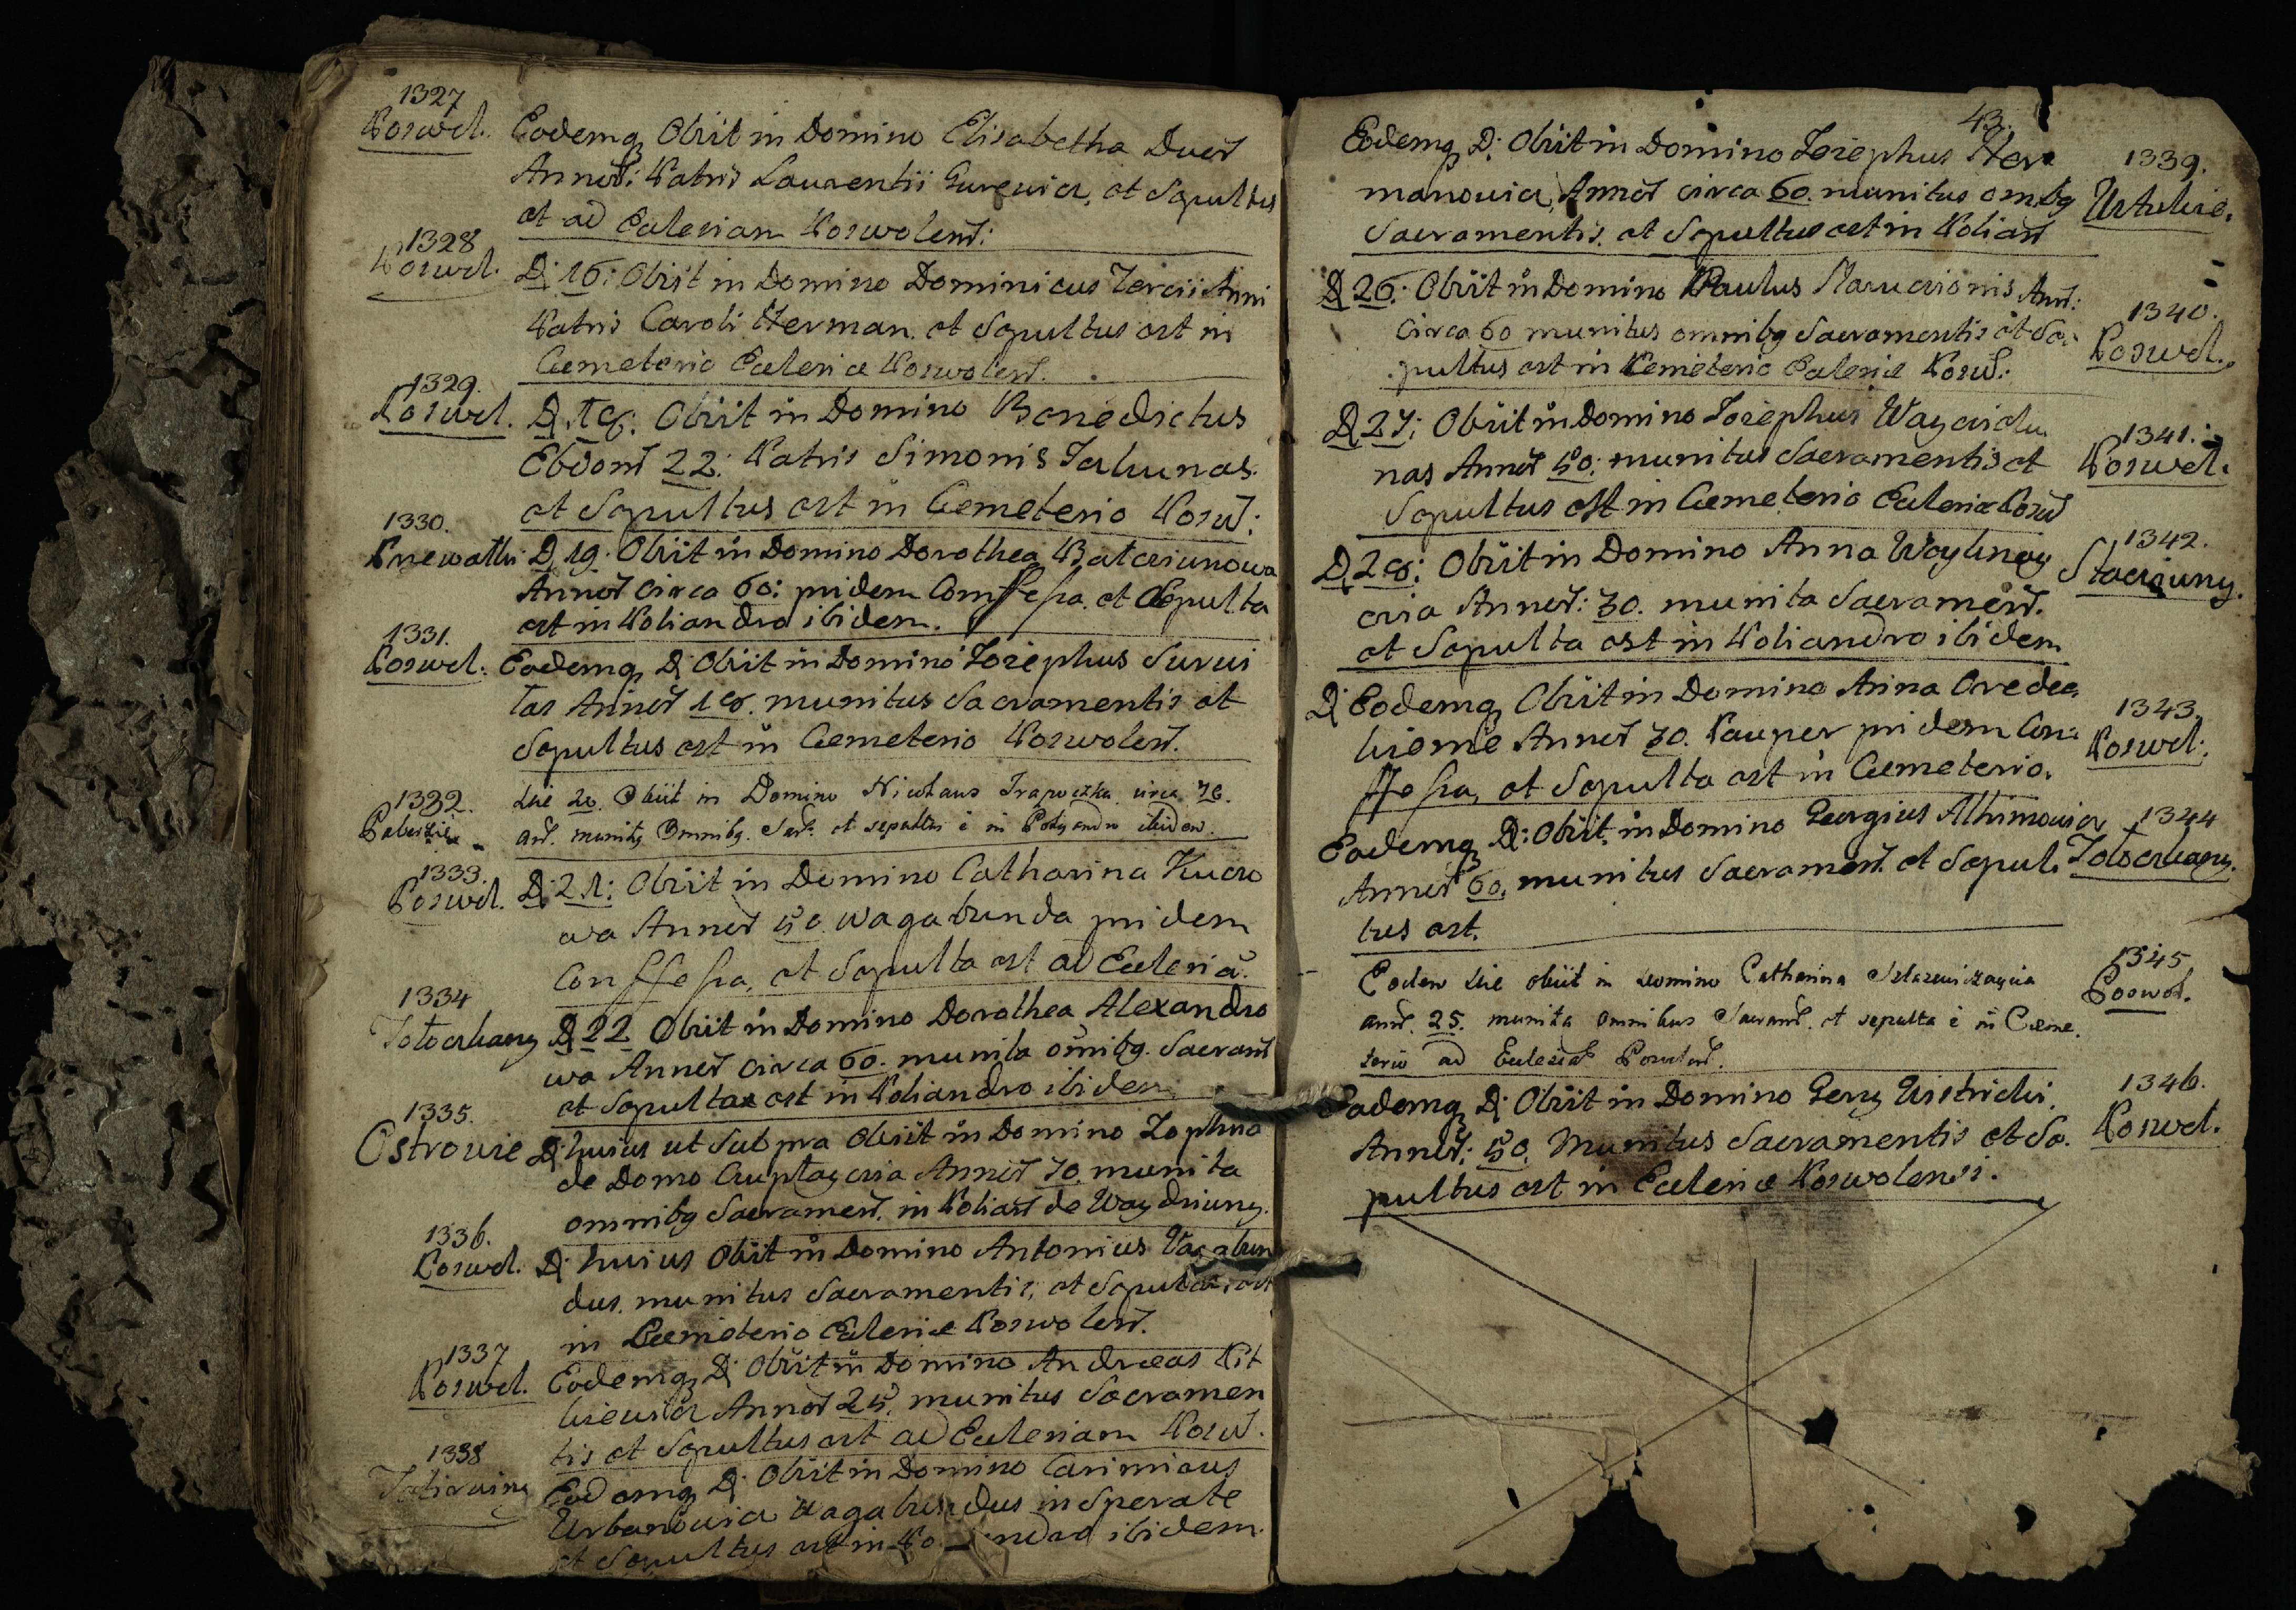 1327
Poswol.
Eodemq Obiit in Domino Elisabetha Duor
Annor: Patris Laurentii Gurewicz, et Sepultus
est ad Eclesiam Poswolens:
1328
Poswol.
D: 16: Obiit in Domino Dominicus Tercii Anni
Patris Caroli Herman. et Sepultus est in
Cemeterio Eclesiæ Poswolens.
1329.
Poswol.
D. 18. Obiit in Domino Benedictus
Ebdom 22: Patris Simonis
et Sepultus est in Cemeterio Posw:
1330.
D 19. Obiit in Domino Dorothea
Annor circa 60: pridem Confessa. et Sepulta
est in Poliandro ibidem.
1331.
Poswol:
Eodemq D: Obiit in Domino Iosephus Survi
las Annor 18. munitus Sacramentis et
Sepultus est in Cemeterio Poswolens.
1332.
die 20. Obiit in Domino Nicolaus circa 70.
an. munitq Omnibq. Sacr. et sepultus e in Polyandro ibidem.
1333.
Poswol.
D: 21: Obiit in Domino Catharina Kucro
wa Annor 50 wagabunda pridem
Confessa, et Sepulta est ad Eclesia.
1334
D 22 Obiit in Domino Dorothea Alexandro
wa Annor circa 60. munita omibq. Sacram
et Sepulta est in Poliandro ibidem
1335.
Ostrowie
D: huius ut Subpra Obiit in Domino Zophia
de Domo Annor 70. munita
omnibq Sacramen. in Polian de
1336.
Poswol.
D: huius Obiit in Domino Antonius Vagabun
dus. munitus Sacramentis, et Sepultus est
in Cemeterio Eclesiæ Poswolens.
1337
Poswol.
Eodemq D: Obiit in Domino Andreas Pit
kiewicz Annor 25. munitus Sacramen
tis et Sepultus est ad Eclesiam Posw.
1338
Eodemq D: Obiit in Domino Casimirus
Urbanowicz Wagabundus insperate
et Sepultus est in ibidem.
43.
Eodemq D: Obiit in Domino Iosephus Her
manowicz, Annor circa 60. munitus omibq
Sacramentis. et Sepultus est in Polian
1339.
D 26: Obiit in Domino Paulus Ann:
circa 60 munitus omnibq Sacramentis et Se
pultus est in Cemeterio Eclesiæ Posw:
1340.
Poswol.
D 27: Obiit in Domino Iosephus
nas Annor 50: munitus Sacramentis et
Sepultus est in Cemeterio Eclesiæ Posw
1341.
Poswol.
D 28: Obiit in Domino Anna
Annor: 30. munita Sacramen.
et Sepulta est in Poliandro ibidem
1342.
D: Eodemq Obiit in Domino Anna
Annor 70. Pauper pridem Con
fessa, et Sepulta est in Cemeterio.
1343.
Poswol:
Eodemq D: Obiit in Domino Georgius
Annor 60, munitus Sacramen. et Sepul
tus est.
1344
Eodem die obiit in Domino Catharina
ann. 25. munita omnibus Sacram. et sepulta e in Ceme
terio ad Eclesia
1345
Poswol.
Eodemq D: Obiit in Domino
Annor: 50. Munitus Sacramentis et Se
pultus est in Eclesiæ Poswolensi.
1346.
Poswol.